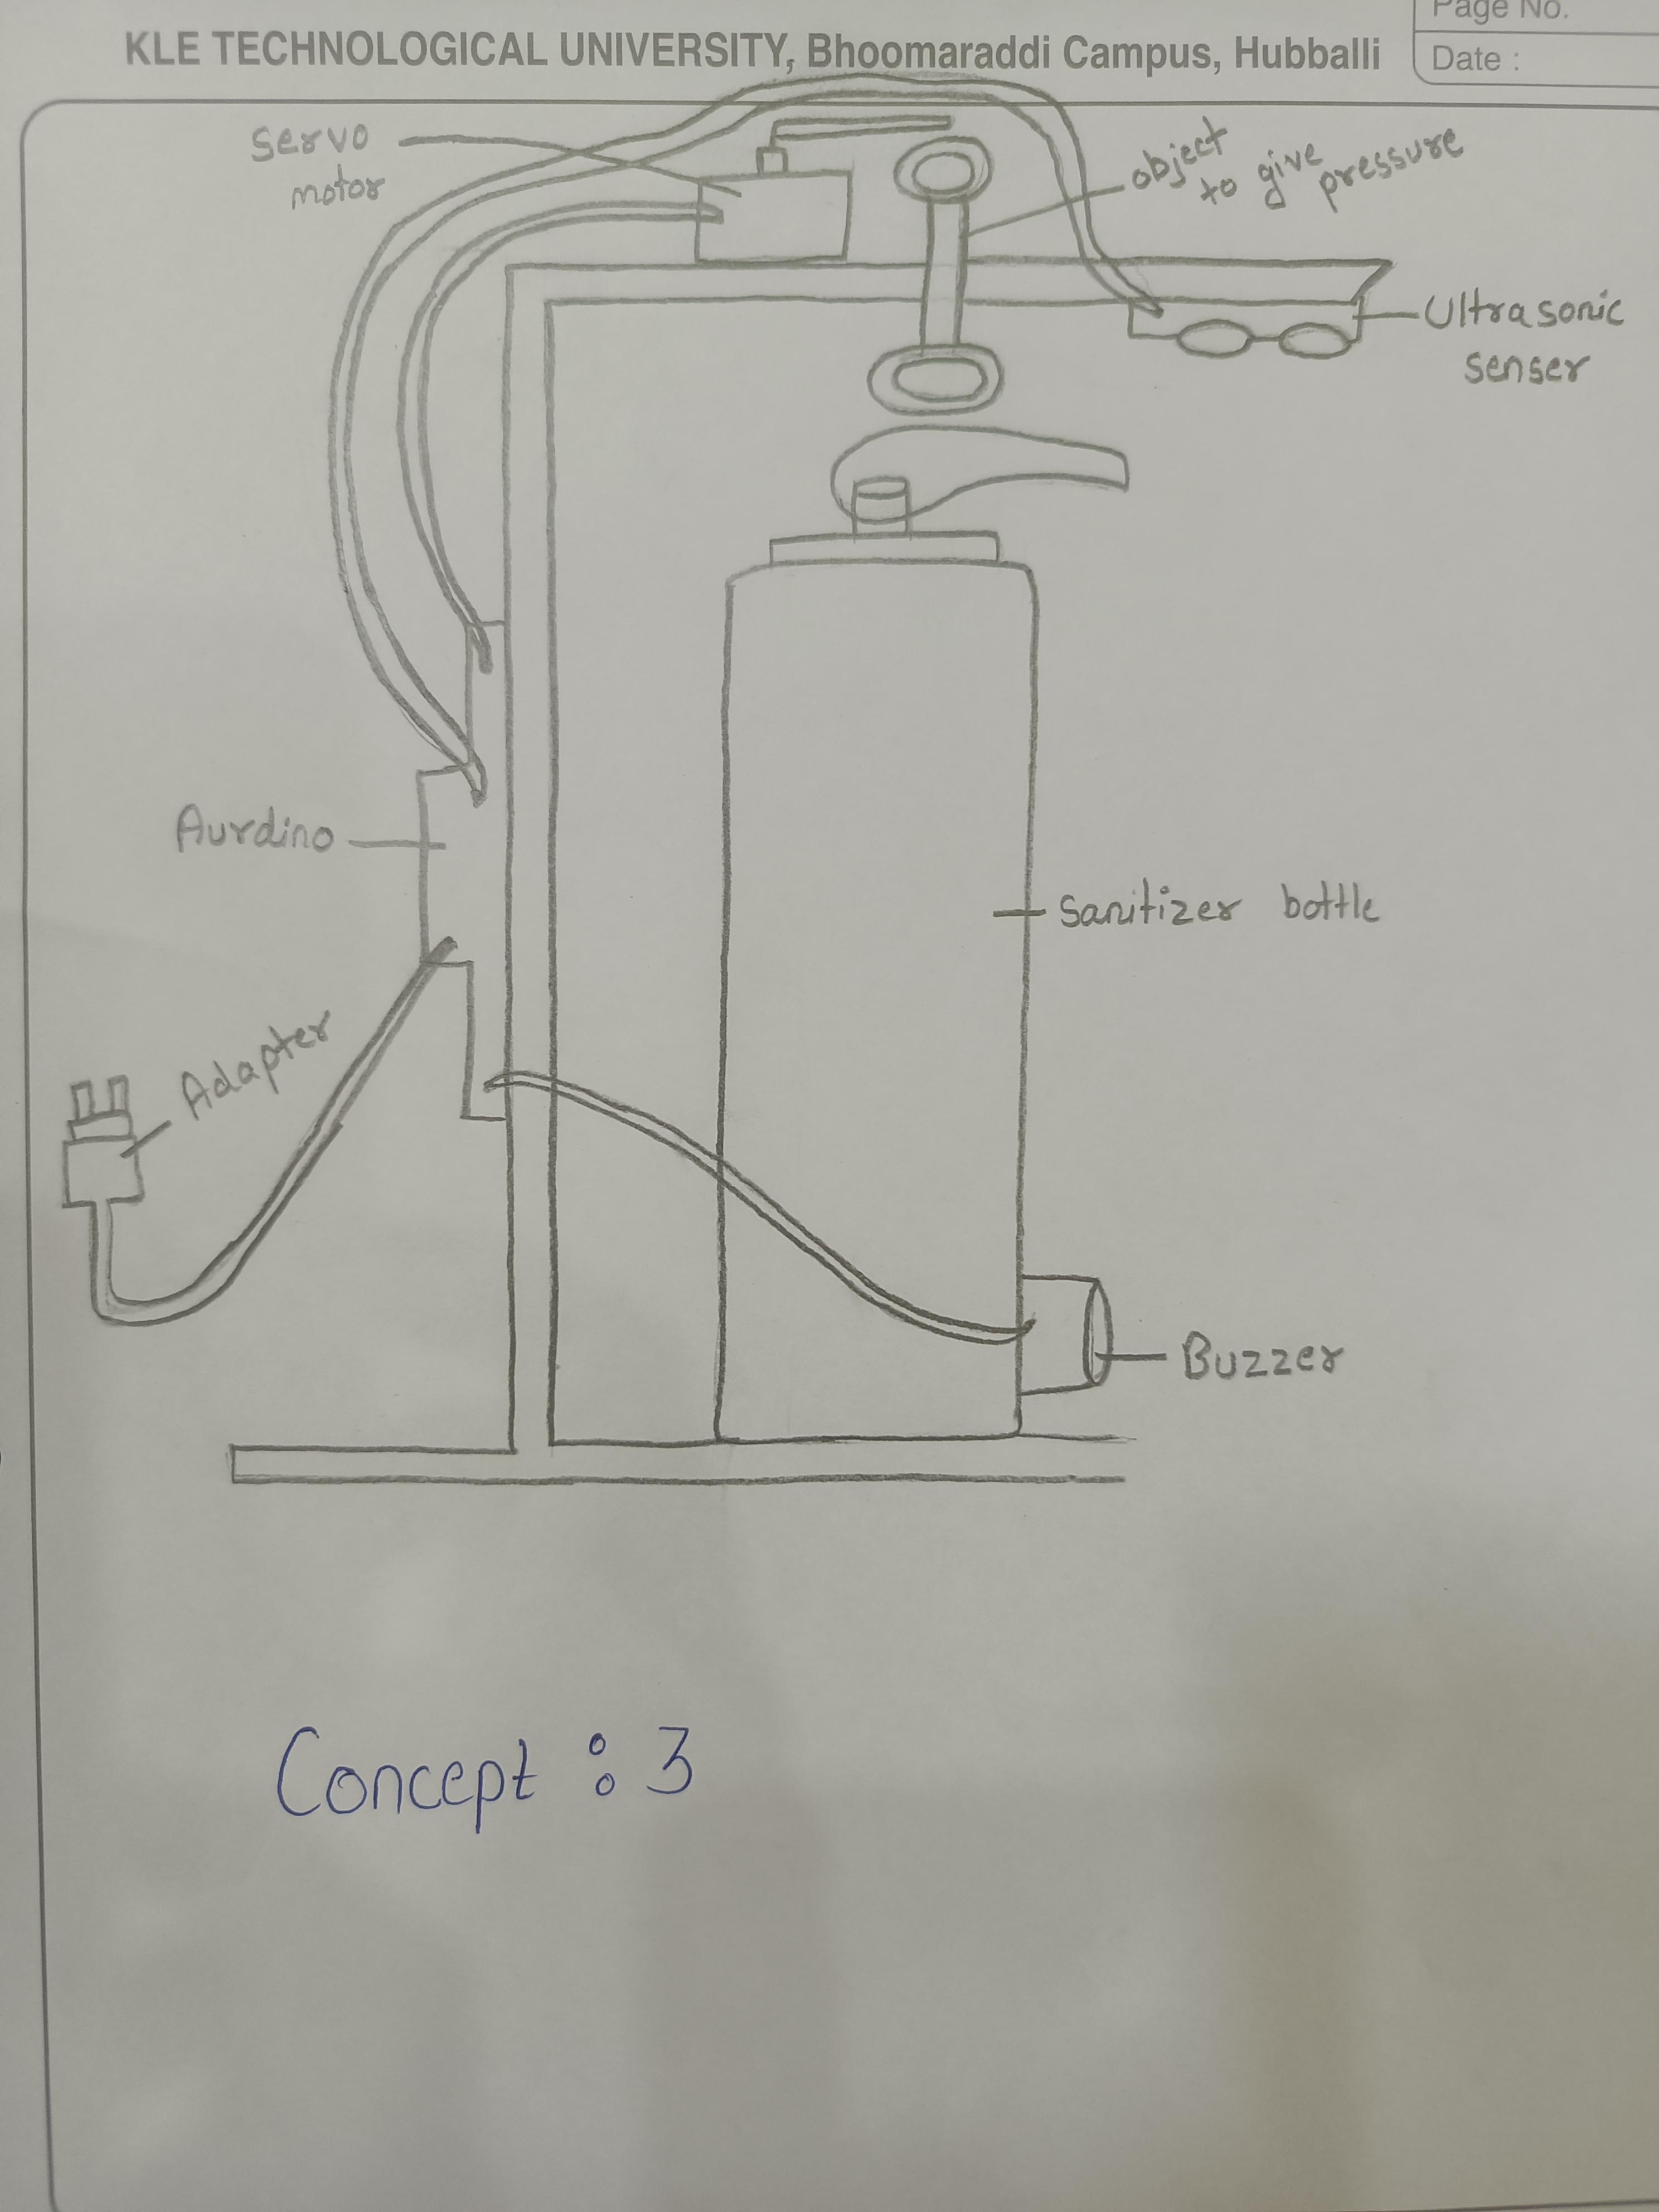 Page No.
KLE TECHNOLOGICAL UNIVERSITY, Bhoomaraddi Campus, Hubballi
Date :
servo
motor
object
to give
pressure
Ultrasonic
senser
Aurdino
sanitizer bottle
Adapter
Buzzer
Concept : 3